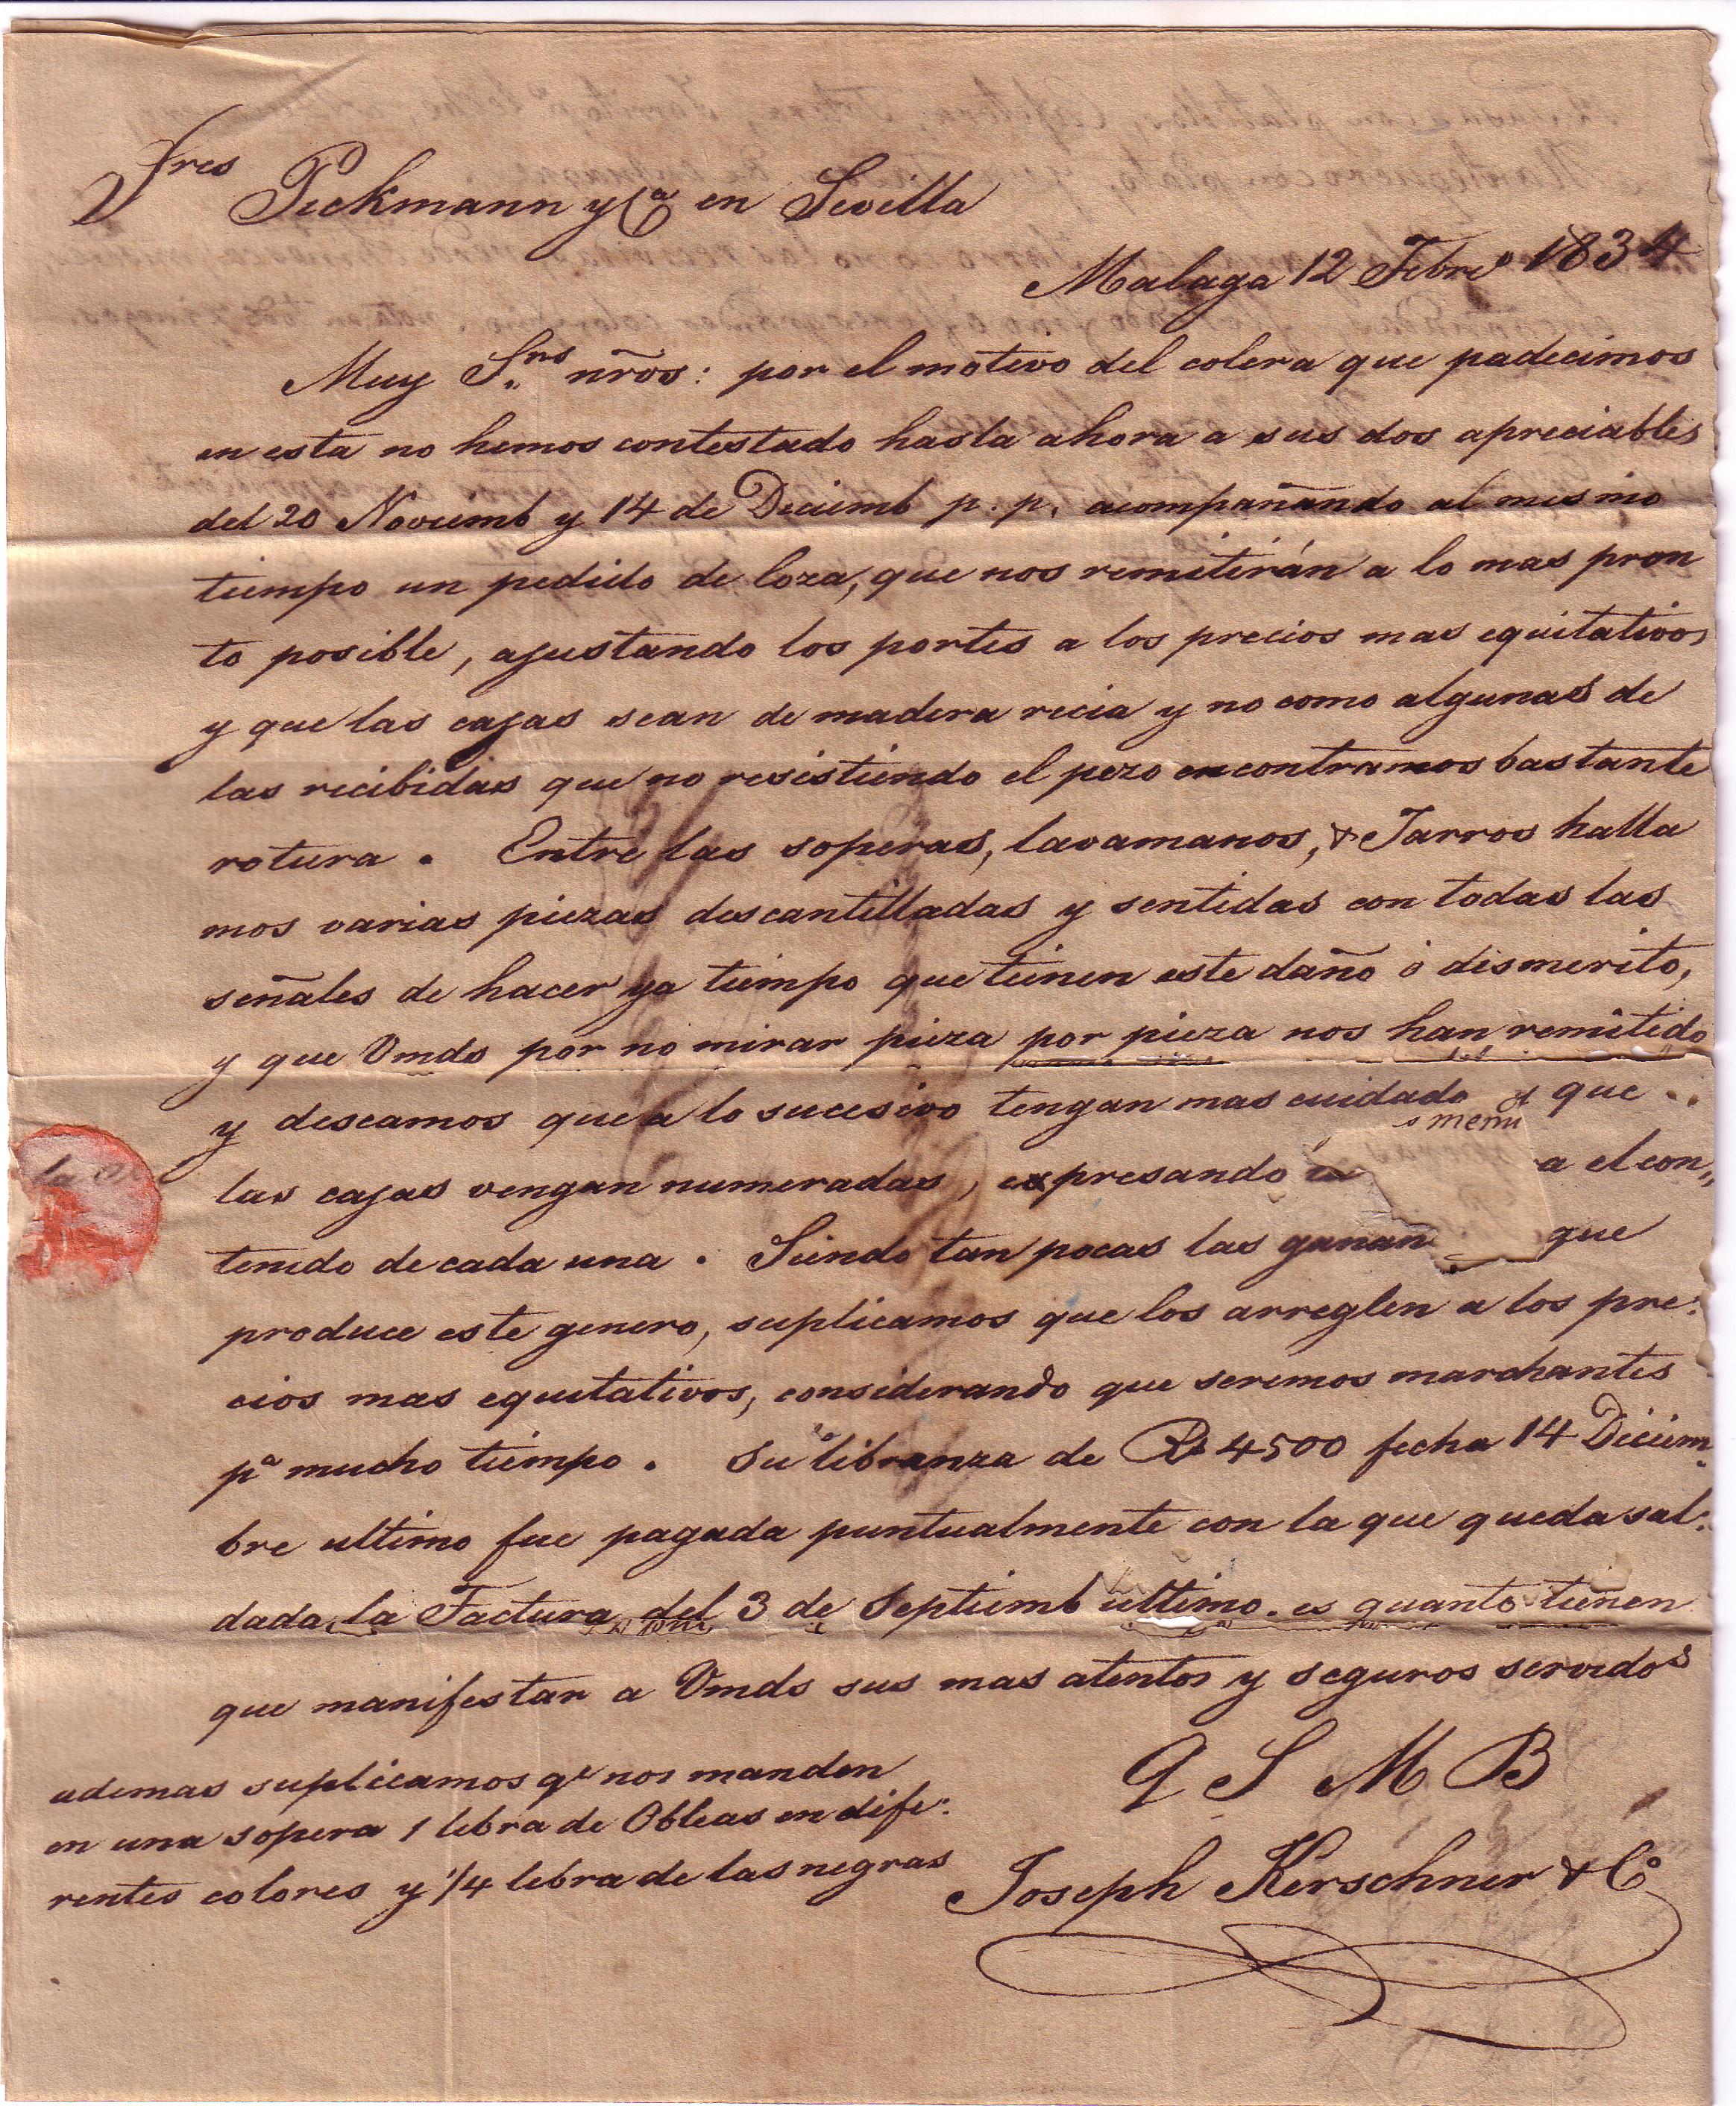 Sres Pickmann y Ca en Sevilla
Malaga 12 Febro 1834
Muy Srns nros: por el motivo del colera que padecimos
en esta no hemos contestado hasta ahora a sus dos apreciables
del 20 Noviemb y 14 de Deciemb p. p. acompañando al mismo
tiempo un pedido de loza, que nos remitirán a lo mas pron
to posible, ajustando los portes a los precios mas equitativos
y que las cajas sean de madera recia y no como algunas de
las recibidas que no resistiendo el pezo encontramos bastante
rotura. Entre las soperas, lavamanos, & Jarros halla
mos varias piezas descantilladas y sentidas con todas las
señales de hacer ya tiempo que tienen este daño ó dismerito,
y que Vmds por no mirar pieza por pieza nos han remitido
y deseamos que a lo sucesivo tengan mas cuidado y que
las cajas vengan numeradas, expresando a el con„
tenido de cada una. Siendo tan pocas las ganan que
produce este genero, suplicamos que los arreglen a los pre:
cios mas equitativos, considerando que seremos marchantes
pa mucho tiempo. Su libranza de Rs 4500 fecha 14 Diciem„
bre ultimo fue pagada puntualmente con la que queda sal:
dada la Factura del 3 de Septiemb ultimo. es quanto tienen
que manifestar a Vmds sus mas atentos y seguros servidos
Q S M B
Joseph Kerschner & Co
ademas suplicamos qe nos manden
en una sopera 1 lebra de Obleas en dife:
rentes colores y 1/4 lebra de las negras